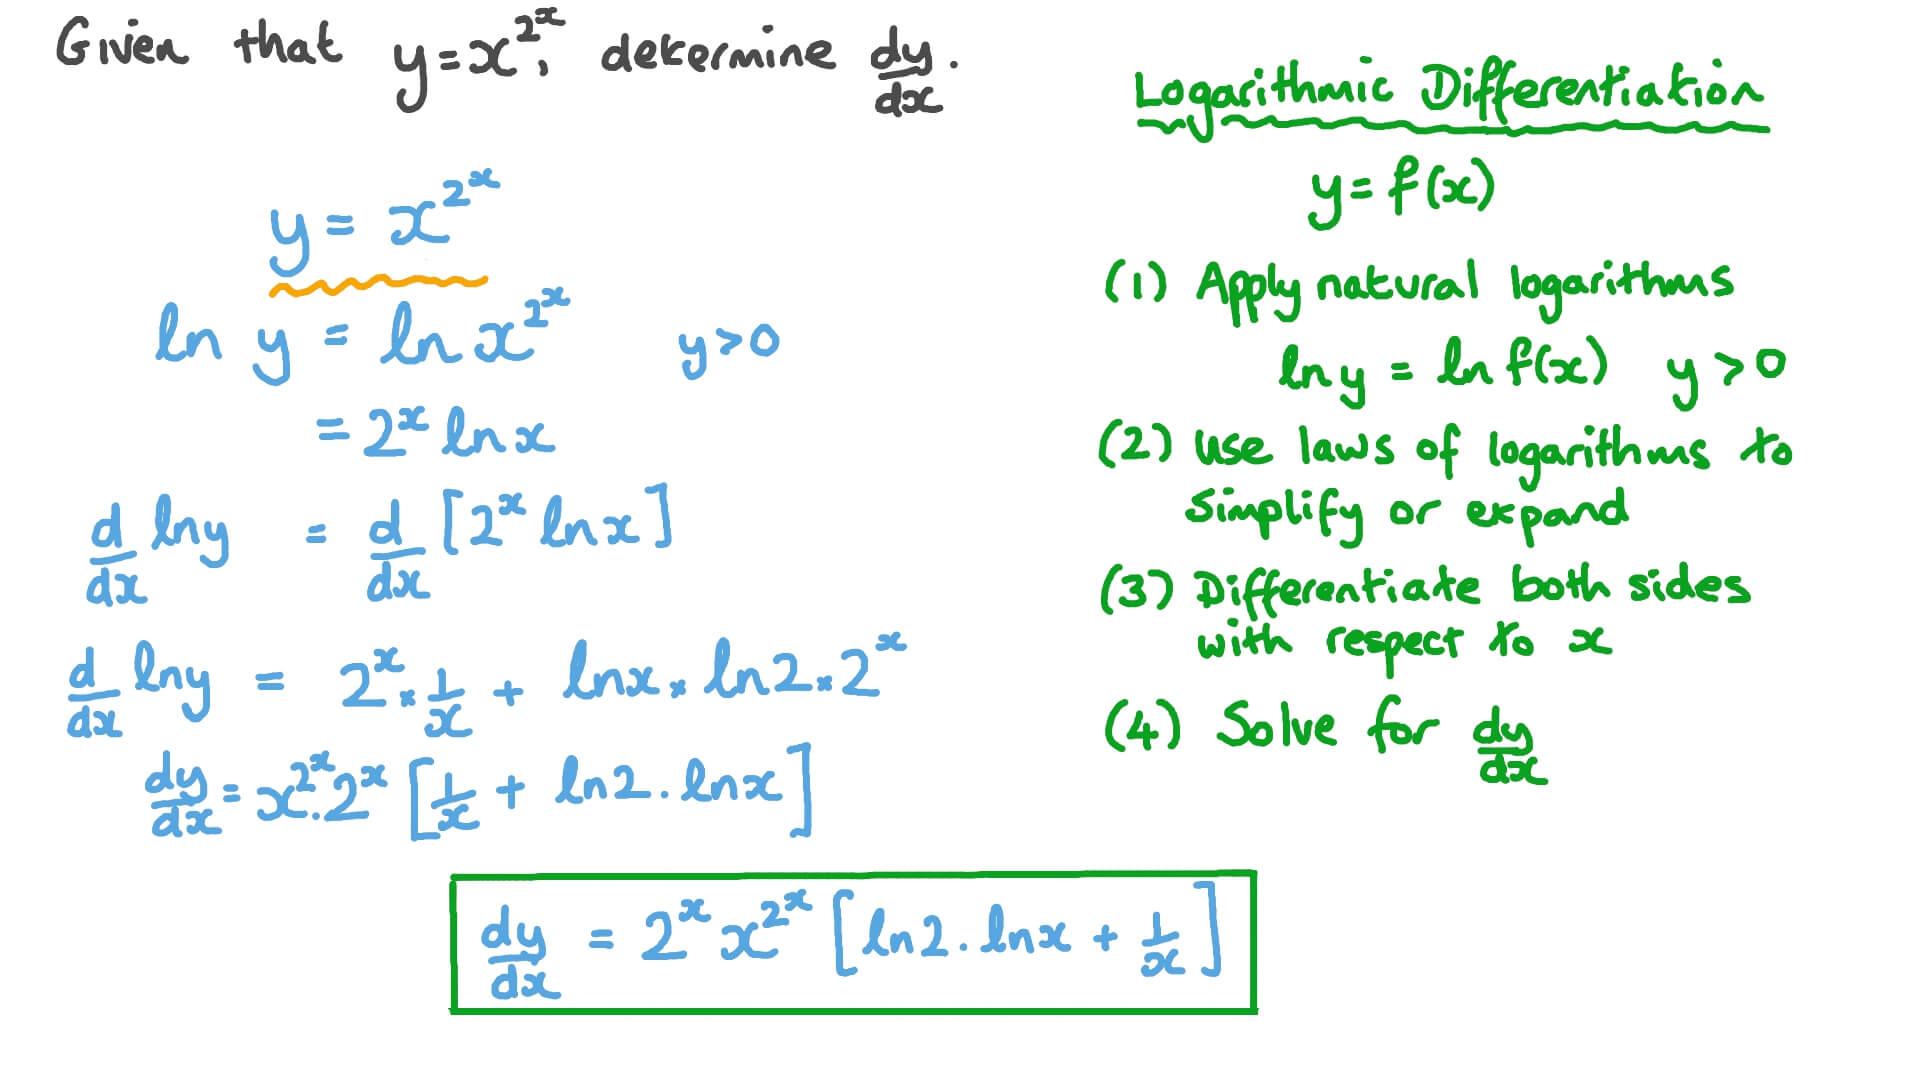 Given that y=x^{2^x}, determine dy/dx.
y = x^{2^x}
ln y = ln x^{2^x} y>0
= 2^x ln x
d/dx ln y = d/dx [2^x ln x]
d/dx ln y = 2^x × 1/x + ln x × ln 2 × 2^x
dy/dx = x^{2^x} . 2^x [1/x + ln 2 . ln x]
dy/dx = 2^x x^{2^x} [ln 2 . ln x + 1/x]
Logarithmic Differentiation
y = f(x)
(1) Apply natural logarithms
ln y = ln f(x) y > 0
(2) Use laws of logarithms to
simplify or expand
(3) Differentiate both sides
with respect to x
(4) Solve for dy/dx